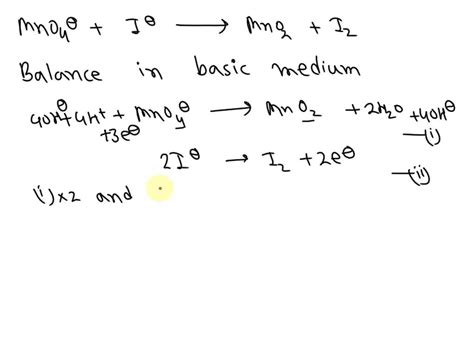 MnO4⊖ + I⊖ → MnO2 + I2
Balance in basic medium
4OH⊖ + 4H⁺ + MnO4⊖ → MnO2 + 2H2O + 4OH⊖
+3e⊖ —(i)
2I⊖ → I2 + 2e⊖
—(ii)
(i)×2 and